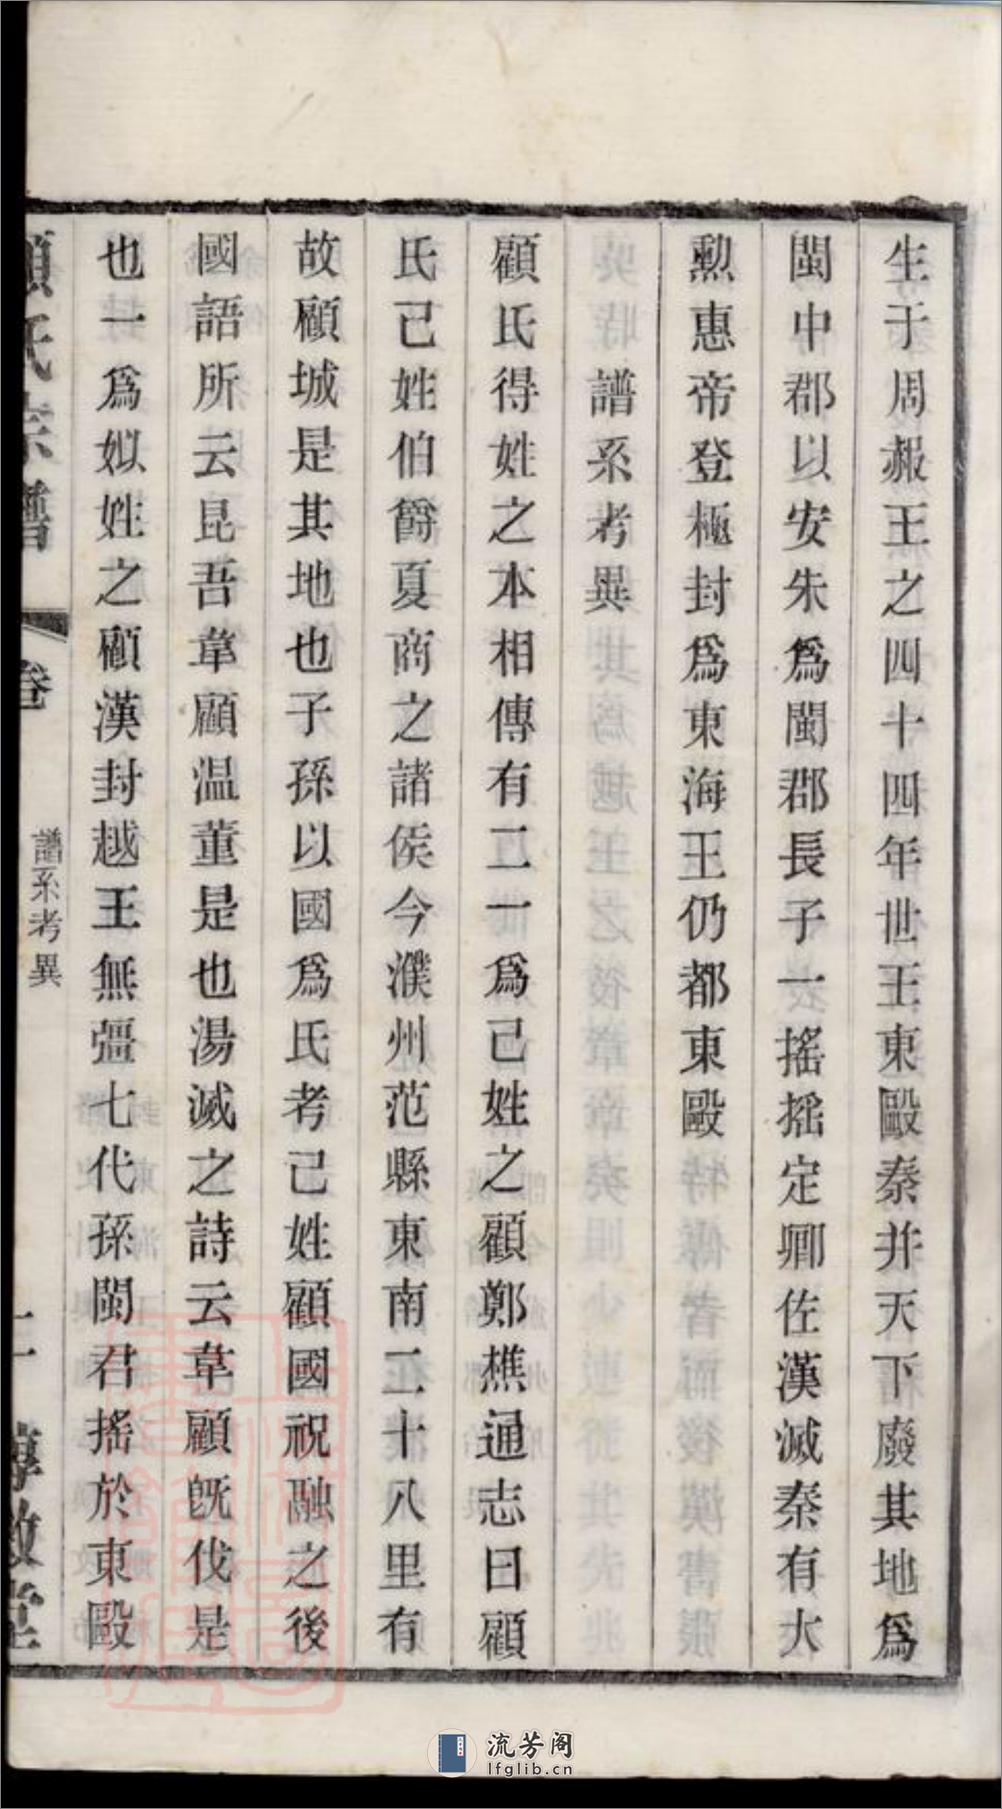 生于周赧王之四十四年世王東毆秦并天下廢其地爲
閩中郡以安朱爲閩郡長子一搖搖定卿佐漢滅秦有大
勲惠帝登極封爲東海王仍都東毆
譜系考異
顧氏得姓之本相傳有二一爲己姓之顧鄭樵通志曰顧
氏己姓伯爵夏商之諸侯今濮州范縣東南二十八里有
故顧城是其地也子孫以國爲氏考己姓顧國祝融之後
國語所云昆吾韋顧温董是也湯滅之詩云韋顧旣伐是
也一爲姒姓之顧漢封越王無彊七代孫閩君搖於東毆
顧氏宗譜
卷
譜系考異
敦堂
流芳阁
lfglib.cn